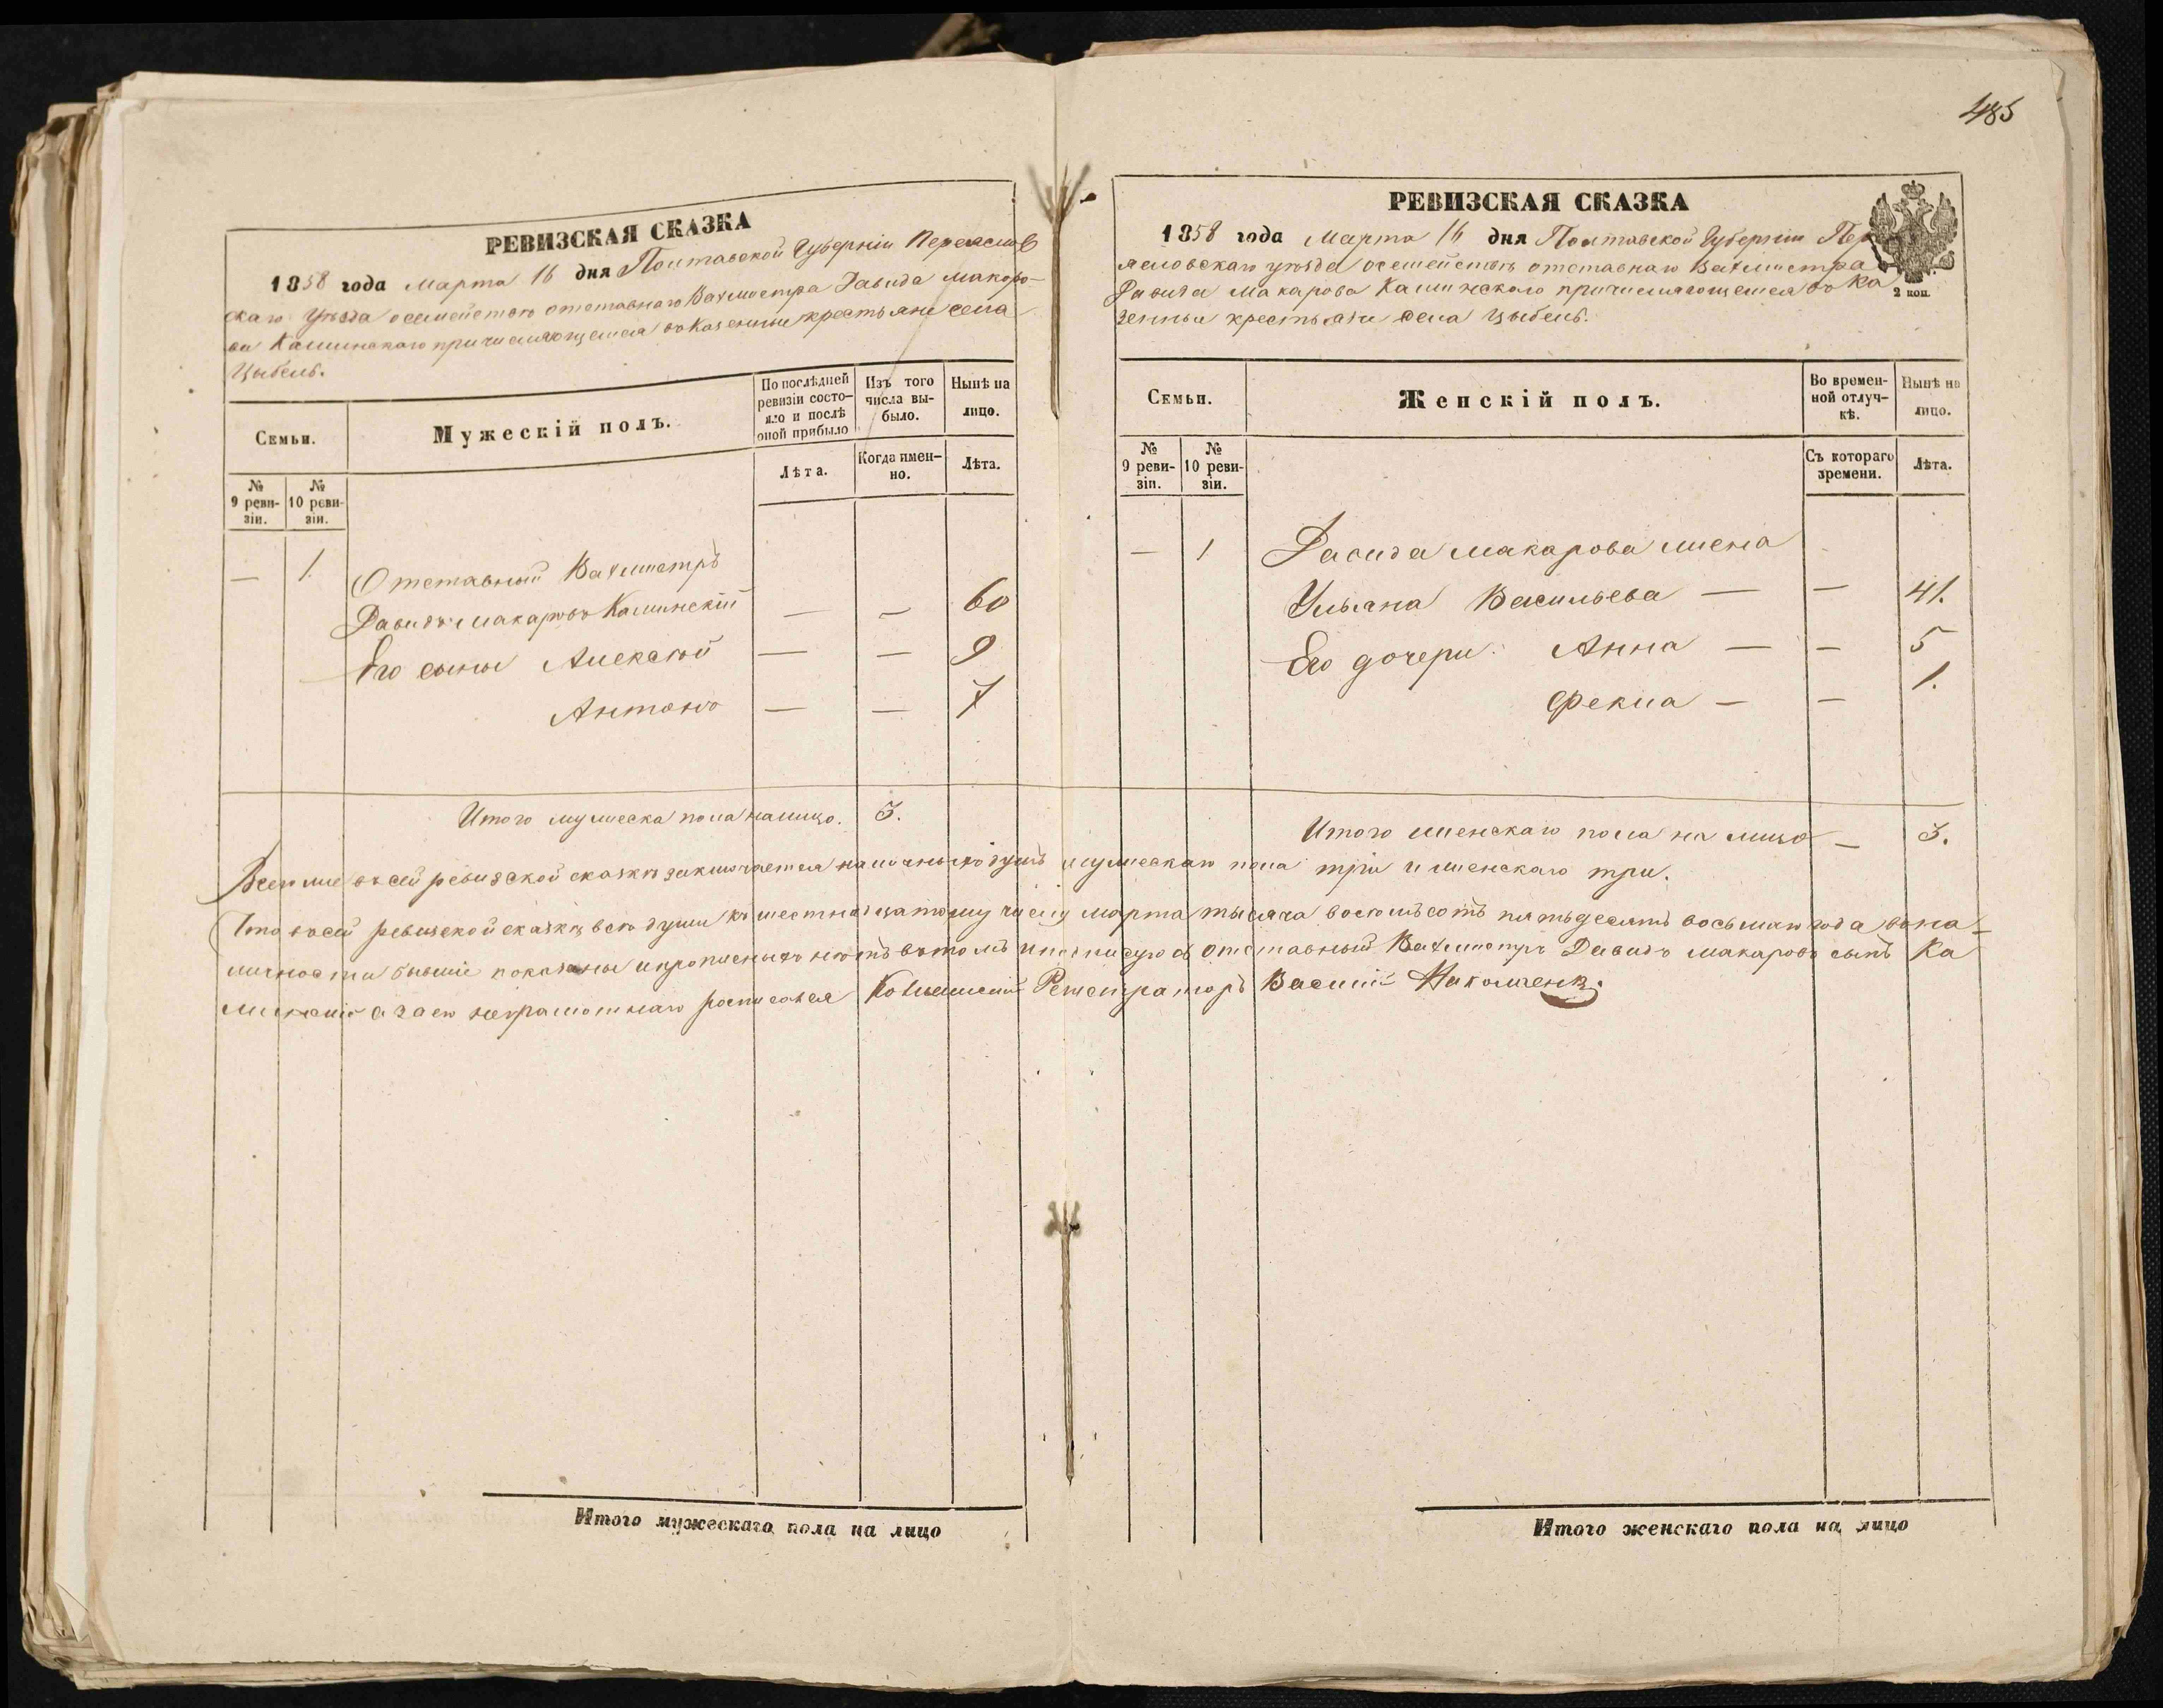 485
РЕВИЗСКАЯ СКАЗКА
1858 года Марта 16 дня Полтавской Губерніи Переяслов
скаго Уѣзда о семействѣ отставнаго Вахмистра Давида Макаро-
ва Калинскаго причисляющемся въ Казенные крестьяне села
Цыбель.
Семьи.
Мужескій полъ.
По послѣдней ревизіи состо-
яло и послѣ оной прибыло
Изъ того числа вы-
было.
Нынѣ на лицо.
№ 9 реви-
зіи.
№ 10 реви-
зіи.
Лѣта.
Когда имен-
но.
Лѣта.
— 1. Отставный Вахмистръ
Давидъ Макаровъ Калинскій — — 60
Его сыны Алексѣй — — 9
Антонъ — — 7
Итого мужеска пола налицо. 3.
РЕВИЗСКАЯ СКАЗКА
1858 года Марта 16 дня Полтавской Губерніи Пер
яславскаго уѣзда о семействѣ отставнаго Вахмистра
Давида Макарова Калинскаго причисляющемся въ Ка
зенные крестьяне села Цыбель.
2 коп.
Семьи.
Женскій полъ.
Во времен-
ной отлуч-
кѣ.
Нынѣ на лицо.
№ 9 реви-
зіи.
№ 10 реви-
зіи.
Съ котораго времени.
Лѣта.
— 1 Давида Макарова жена
Ульяна Васильева — — 41.
Его дочери: Анна — — 5
Фекла — — 1.
Итого женскаго пола на лицо — 3.
Всего же въ сей ревизской сказкѣ заключается наличныхъ душъ мужескаго пола три и женскаго три.
Что въ сей ревизской сказкѣ всѣ души къ шестнадцатому числу марта тысяча восемьсотъ пятьдесятъ восьмаго года въ на-
личности бывшіе показаны и прописныхъ нѣтъ въ томъ и подписуюсь отставный Вахмистръ Давидъ Макаровъ сынъ Ка
линскій а за его неграмотнаго росписался Колежскій Регистраторъ Василій
Итого мужескаго пола на лицо
Итого женскаго пола на лицо